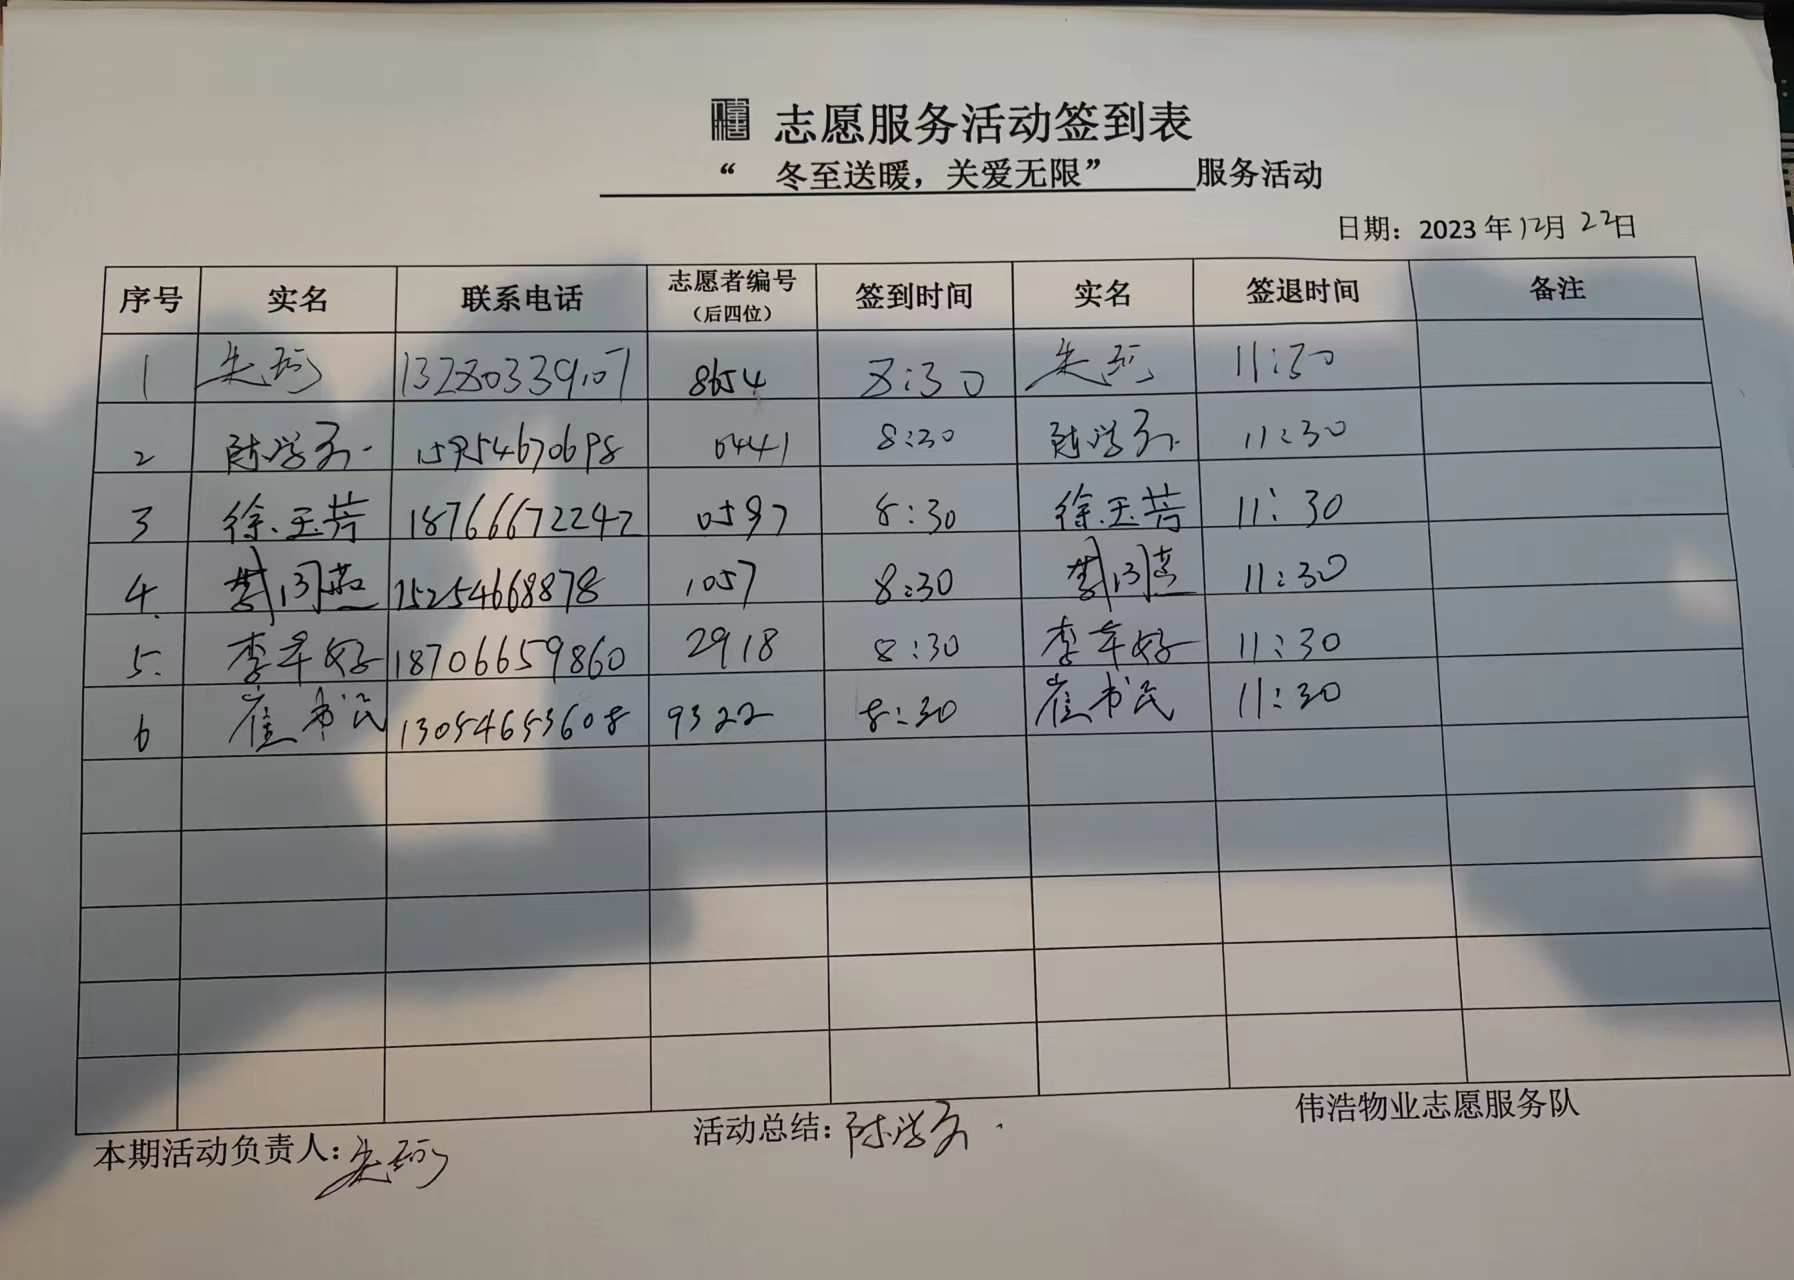 志愿服务活动签到表
“ 冬至送暖，关爱无限” 服务活动
日期：2023 年12月22日
序号 实名 联系电话 志愿者编号（后四位） 签到时间 实名 签退时间 备注
1 8654 8:30 11:30
2 陈学 15954670698 0441 8:30 陈学 11:30
3 徐玉芳 18766672242 0597 8:30 徐玉芳 11:30
4. 燕 15254668878 1057 8:30 燕 11:30
5. 李年好 18706659860 2918 8:30 李年好 11:30
6 崔书民 13054653608 9322 8:30 崔书民 11:30
本期活动负责人： 活动总结：陈学 伟浩物业志愿服务队